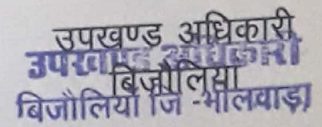 उपखण्ड अधिकारी
उपखण्ड अधिकारी
बिजौलिया
बिजौलियां जि -भीलवाड़ा